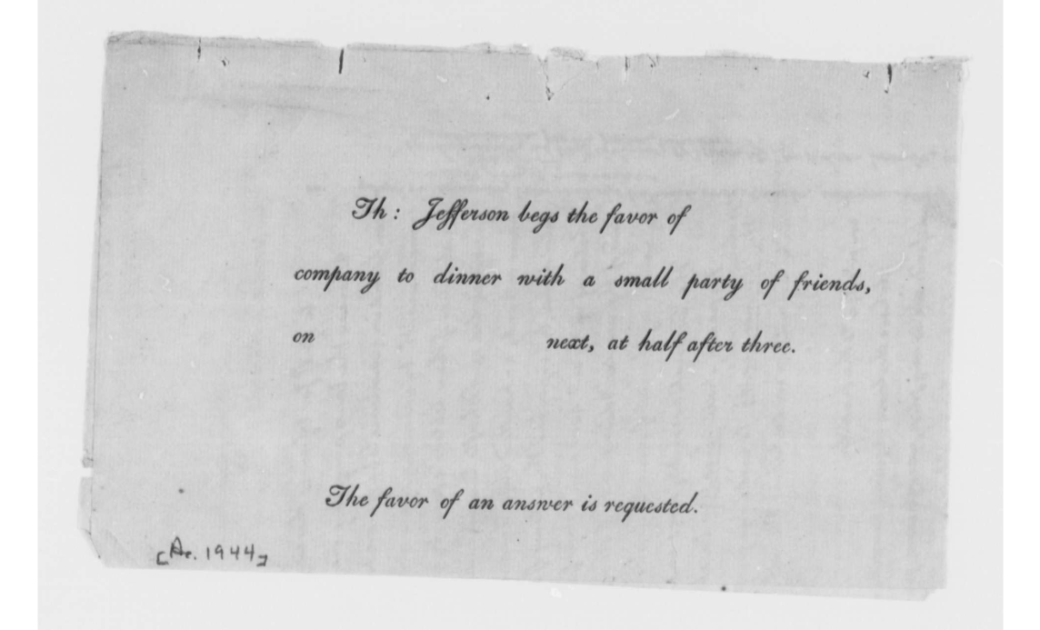 Th: Jefferson begs the favor of
company to dinner with a small party of friends,
on next, at half after three.
The favor of an answer is requested.
[Ac. 1944]